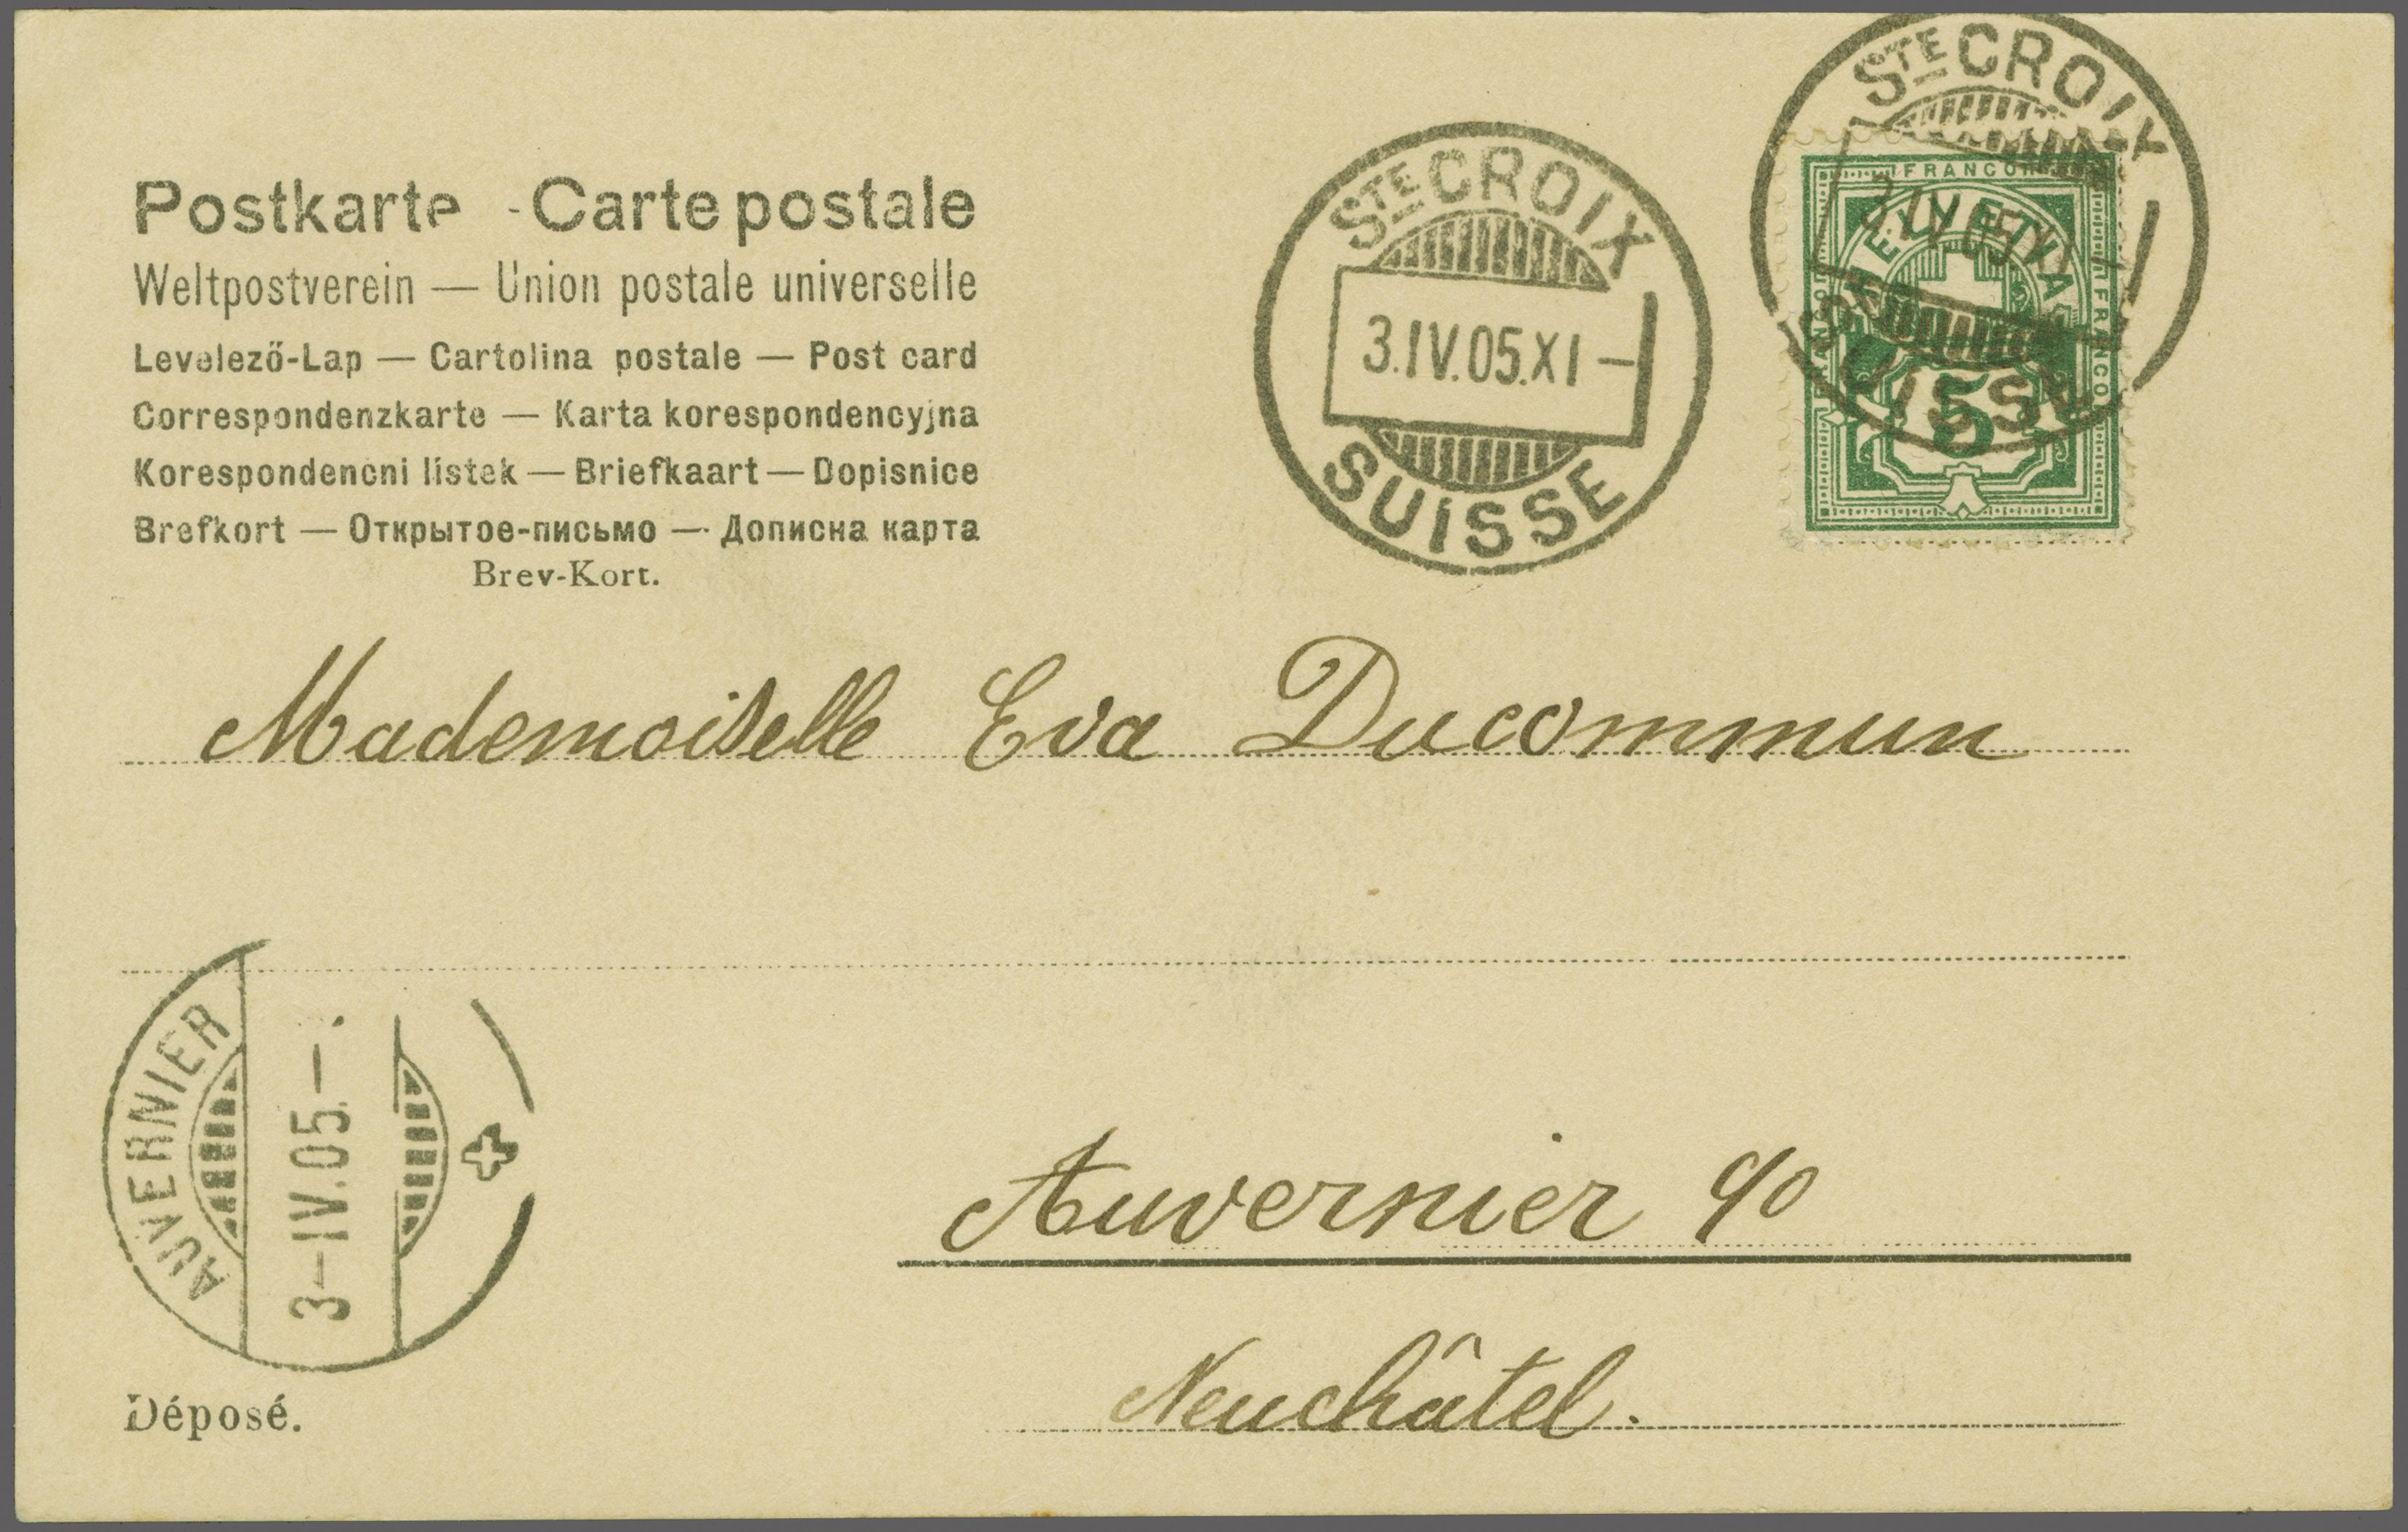 Postkarte - Carte postale
Weltpostverein — Union postale universelle
Levelező-Lap — Cartolina postale — Post card
Correspondenzkarte — Karta korespondencyjna
Korespondencni lístek — Briefkaart — Dopisnice
Brefkort — Открытое-письмо — Дописна карта
Brev-Kort.
STE CROIX
3.IV.05.XI –
SUISSE
STE CROIX
3.IV.05.XI –
SUISSE
FRANCO
FRANCO
FRANCO
HELVETIA
5
Mademoiselle Eva Ducommun
AUVERNIER
3–IV.05.–
Auvernier
Neuchâtel.
Déposé.